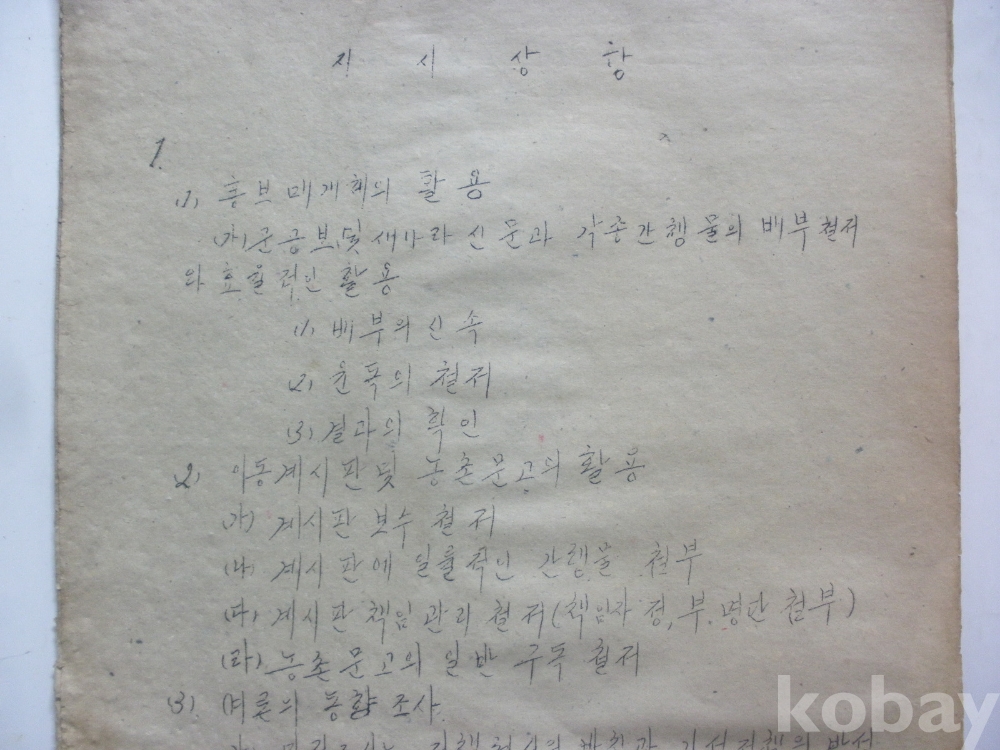 지 시 상 항
1.
(1) 흥부매개체의 활용
(가) 군공보및 새나라 신문과 각종간행물의 배부철저
와 효율적인 활용
(1) 배부의 신속
(2) 윤독의 철저
(3) 결과의 확인
(2) 이동게시판 및 농촌문고의 활용
(가) 게시판 보수 철저
(나) 게시판에 일률적인 간행물 첨부
(다) 게시판 책임관리 철저(책임자 정,부.명단 첨부)
(라) 농촌문고의 일반 구독 철저
(3) 여론의 동향조사
kobay